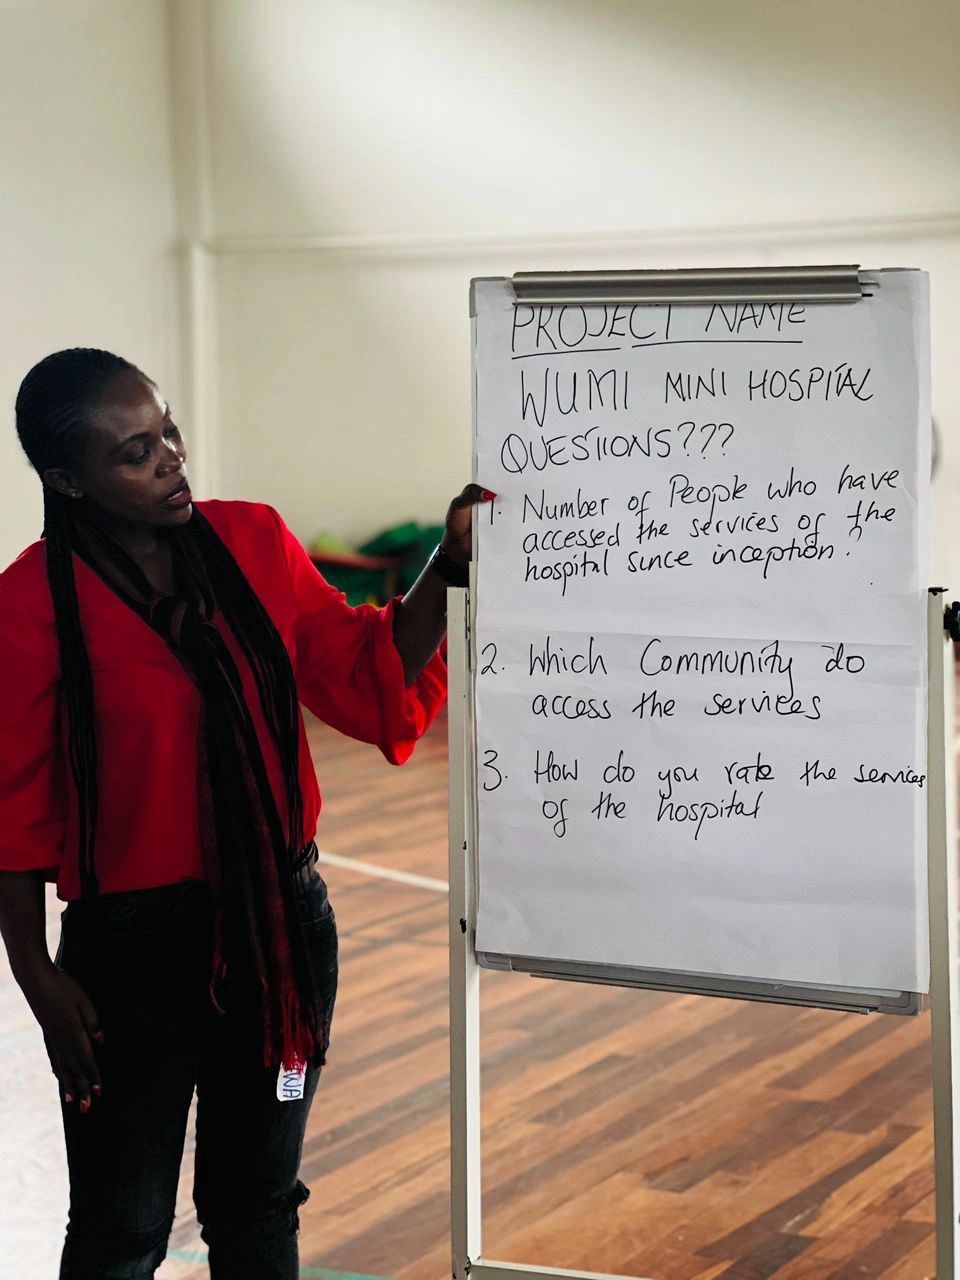 PROJECT NAME
WUMI MINI HOSPITAL
QUESTIONS???
1. Number of People who have
accessed the services of the
hospital since inception?
2. Which Community do
access the services
3. How do you rate the services
of the hospital